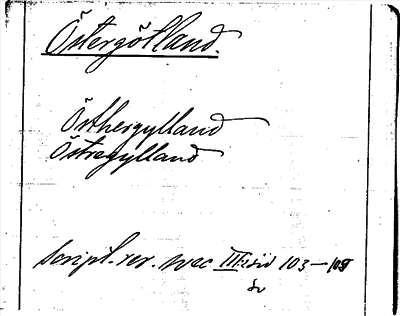 Östergötland.
Östhergylland
Östregylland
Script. rer. svec III:sid 103-105